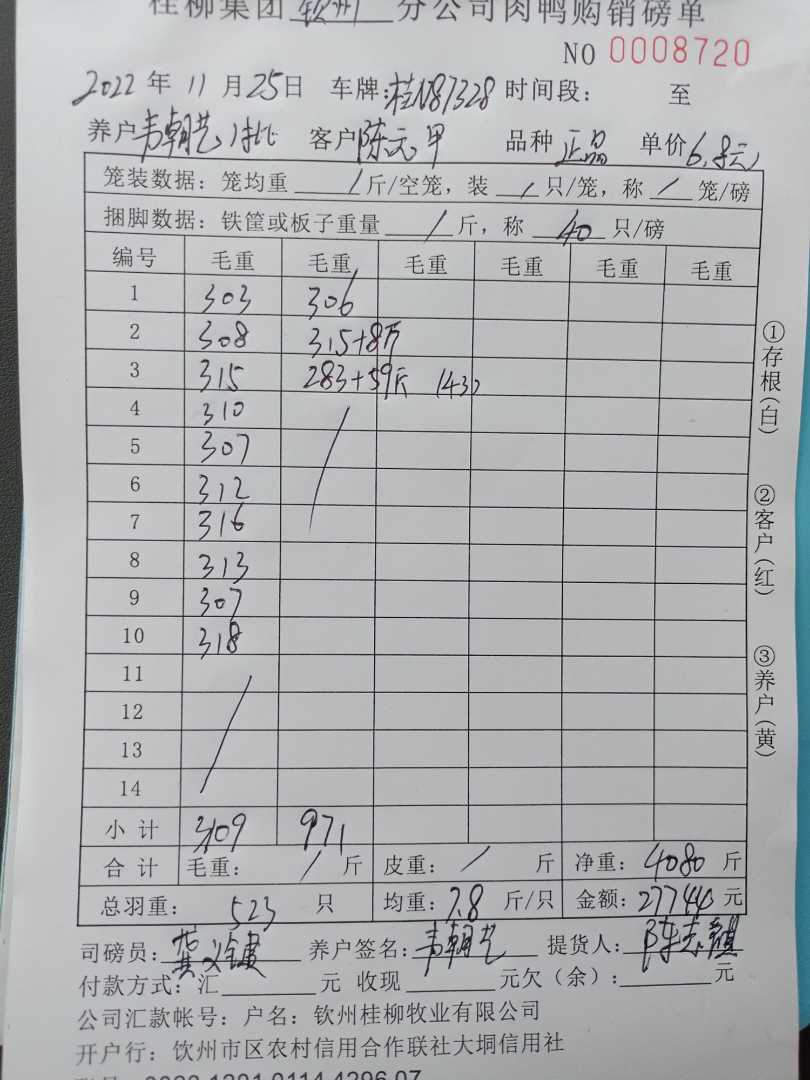 桂柳集团 钦州 分公司肉鸭购销磅单
NO 0008720
2022 年 11 月 25 日 车牌:桂N87328 时间段: 至
养户 韦朝艺 1批 客户 陈元甲 品种 正品 单价 6.8元
笼装数据: 笼均重 / 斤/空笼, 装 / 只/笼, 称 / 笼/磅
捆脚数据: 铁筐或板子重量 / 斤, 称 40 只/磅
编号 毛重 毛重 毛重 毛重 毛重 毛重
1 303 306
2 308 315+8斤
3 315 283+59斤 (43)
4 310
5 307
6 312
7 316
8 313
9 307
10 318
11
12
13
14
小计 3109 971
合计 毛重: / 斤 皮重: / 斤 净重: 4080 斤
总羽重: 523 只 均重: 7.8 斤/只 金额: 27744.0 元
司磅员: 养户签名: 韦朝艺 提货人: 陈
付款方式: 汇 元 收现 元欠(余): 元
公司汇款帐号: 户名: 钦州桂柳牧业有限公司
开户行: 饮州市区农村信用合作联社大垌信用社
①存根(白)
②客户(红)
③养户(黄)